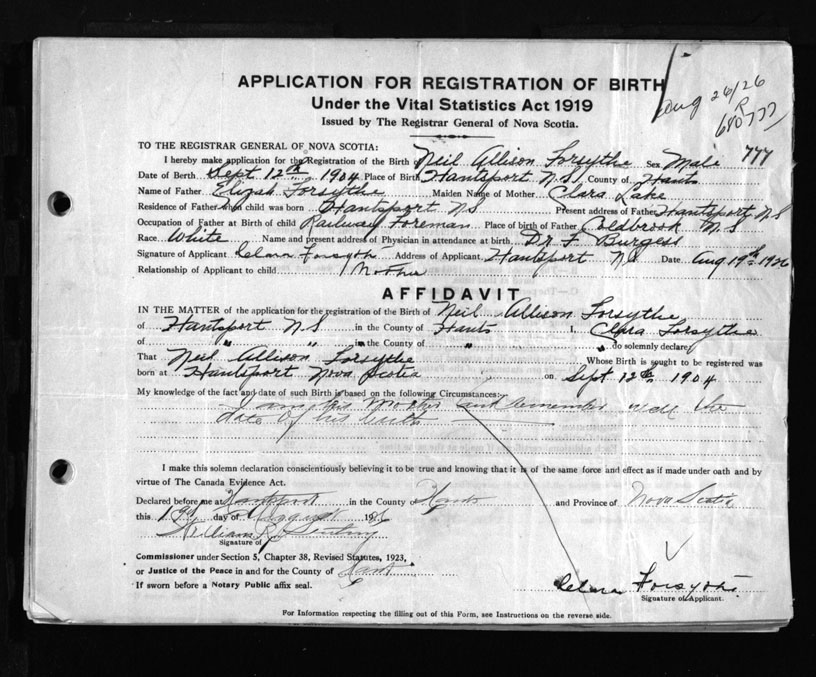 APPLICATION FOR REGISTRATION OF BIRTH
Under the Vital Statistics Act 1919
Issued by The Registrar General of Nova Scotia.
Aug 26/26
R
680777
777
TO THE REGISTRAR GENERAL OF NOVA SCOTIA:
I hereby make application for the Registration of the Birth Neil Allison Forsythe Sex Male
Date of Birth Sept 12th 1904 Place of Birth Hantsport N.S. County of Hants
Name of Father Elijah Forsythe Maiden Name of Mother Clara Lake
Residence of Father when child was born Hantsport N S Present address of Father Hantsport N S
Occupation of Father at Birth of child Railway Foreman Place of birth of Father Coldbrook N.S
Race White Name and present address of Physician in attendance at birth Dr F Burgess
Signature of Applicant Clara Forsyth Address of Applicant Hantsport N S Date Aug 19th 1926
Relationship of Applicant to child Mother
AFFIDAVIT
IN THE MATTER of the application for the registration of the Birth of Neil Allison Forsythe
of Hantsport N S in the County of Hants I, Clara Forsythe
of " " in the County of " do solemnly declare
That Neil Allison Forsythe Whose Birth is sought to be registered was
born at Hantsport Nova Scotia on Sept 12th 1904
My knowledge of the fact and date of such Birth is based on the following Circumstances:
I am his Mother and remember well the
date of his birth
I make this solemn declaration conscientiously believing it to be true and knowing that it is of the same force and effect as if made under oath and by
virtue of The Canada Evidence Act.
Declared before me at Hantsport in the County Hants and Province of Nova Scotia
this 19th day of August 1926
William R
Signature of
Commissioner under Section 5, Chapter 38, Revised Statutes, 1923,
or Justice of the Peace in and for the County of Hants
If sworn before a Notary Public affix seal.
Clara Forsyth
Signature of Applicant.
For Information respecting the filling out of this Form, see Instructions on the reverse side.